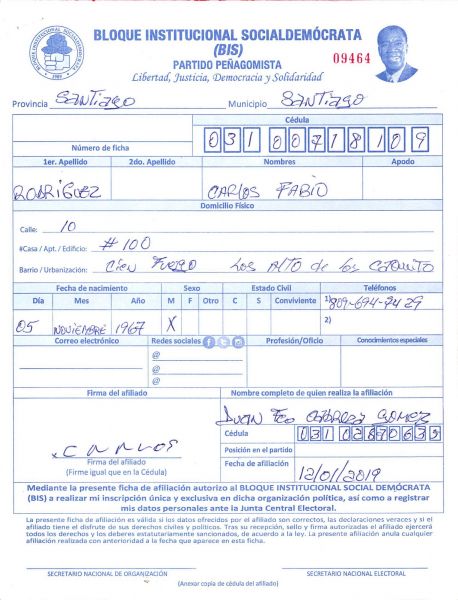 BLOQUE INSTITUCIONAL SOCIALDEMÓCRATA
(BIS)
PARTIDO PEÑAGOMISTA
09464
Libertad, Justicia, Democracia y Solidaridad
Provincia Santiago Municipio Santiago
Número de ficha
Cédula
031 0071810 9
1er. Apellido 2do. Apellido Nombres Apodo
RODRÍGUEZ CARLOS FABIO
Domicilio Físico
Calle: 10
#Casa / Apt. / Edificio: #100
Barrio / Urbanización: Cien Fuego Los Alto de los
Fecha de nacimiento Sexo Estado Civil Teléfonos
Día Mes Año M F Otro C S Conviviente 1) 809-694-7429
05 NOVIEMBRE 1967 X 2)
Correo electrónico Redes sociales Profesión/Oficio Conocimientos especiales
@
@
@
Firma del afiliado Nombre completo de quien realiza la afiliación
Juan Fco Gomez
Cédula 031 0287063 9
CARLOS
Firma del afiliado
(Firme igual que en la Cédula)
Posición en el partido
Fecha de afiliación 12/01/2019
Mediante la presente ficha de afiliación autorizo al BLOQUE INSTITUCIONAL SOCIAL DEMÓCRATA
(BIS) a realizar mi inscripción única y exclusiva en dicha organización política, así como a registrar
mis datos personales ante la Junta Central Electoral.
La presente ficha de afiliación es válida si los datos ofrecidos por el afiliado son correctos, las declaraciones veraces y si el
afiliado tiene el disfrute de sus derechos civiles y políticos. Tras su recepción, sello y firma autorizadas el afiliado ejercerá
todos los derechos y los deberes estatutariamente sancionados, de acuerdo a la ley. La presente afiliación anula cualquier
afiliación realizada con anterioridad a la fecha que aparece en esta ficha.
SECRETARIO NACIONAL DE ORGANIZACIÓN SECRETARIO NACIONAL ELECTORAL
(Anexar copia de cédula del afiliado)